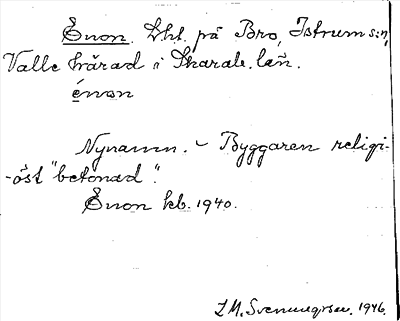 Enon. Lht. på Bro, Istrums sn,
Valle härad i Skarab. län.
énon
Nynamn. - Byggaren religi-
-öst "betonad".
Enon kb. 1940.
I.M. Svenungsson. 1946.